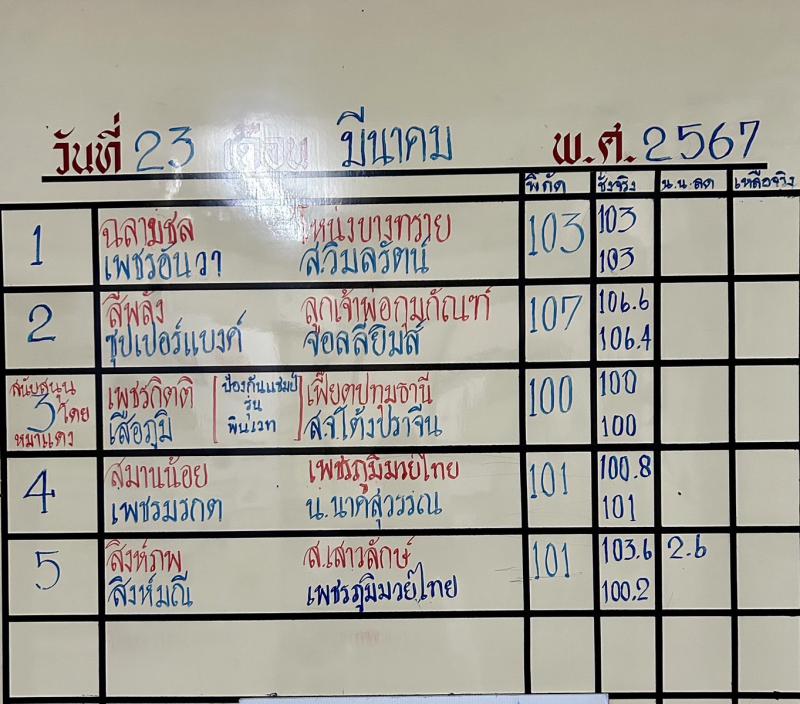 วันที่ 23 เดือน มีนาคม พ.ศ. 2567
พิกัด ชั่งจริง น.น.ลด เหลือจริง
1 ฉลามชล โหน่งบางทราย 103 103
เพชรอันวา ส.วิมลรัตน์ 103
2 สีพลัง ลูกเจ้าพ่อกุมภัณฑ์ 107 106.6
ซุปเปอร์แบงค์ จอลลี่ยิมส์ 106.4
สนับสนุน 3 โดย หมาแดง
เพชรกิตติ เฟี๊ยตปทุมธานี 100 100
เสือภูมิ ส.จ.โต้งปราจีน 100
[ป้องกันแชมป์
รุ่น
พินเวท]
4 สมานน้อย เพชรภูมิมวยไทย 101 100.8
เพชรมรกต น.นาคสุวรรณ 101
5 สิงห์ภพ ส.เสาวลักษ์ 101 103.6 2.6
สิงห์มณี เพชรภูมิมวยไทย 100.2